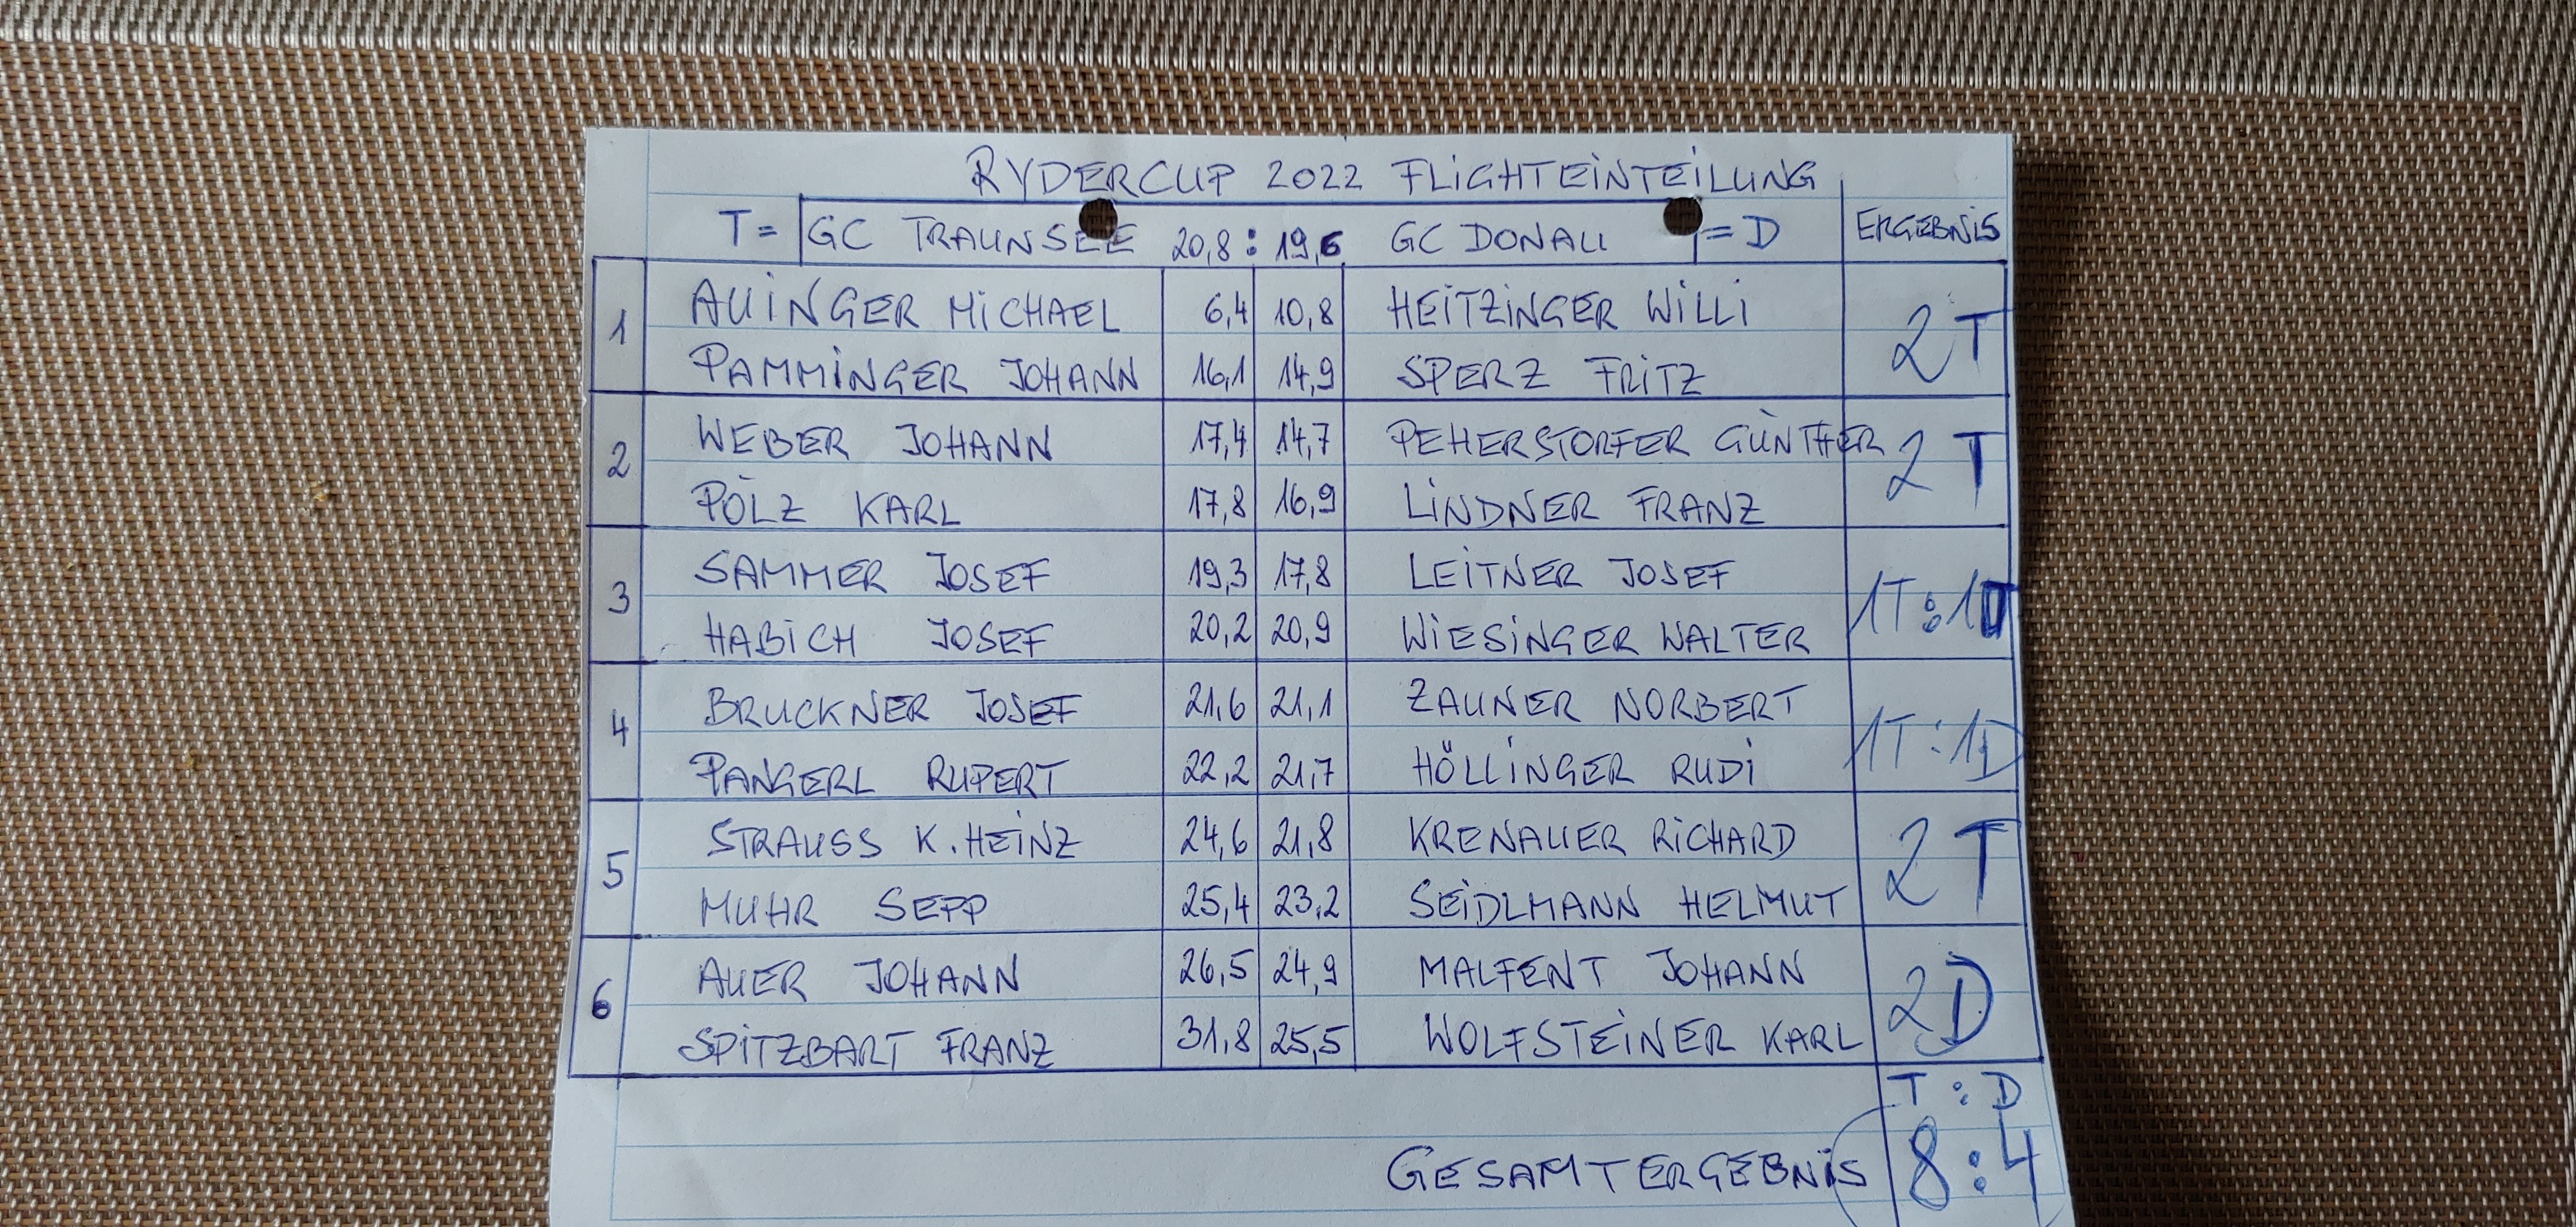 RYDERCUP 2022 FLIGHTEINTEILUNG
T= GC TRAUNSEE 20,8 : 19,6 GC DONAU =D ERGEBNIS
1 AUINGER MICHAEL 6,4 10,8 HEITZINGER WILLI 2T
PAMMINGER JOHANN 16,1 14,9 SPERZ FRITZ
2 WEBER JOHANN 17,4 14,7 PEHERSTORFER GÜNTHER 2T
PÖLZ KARL 17,8 16,9 LINDNER FRANZ
3 SAMMER JOSEF 19,3 17,8 LEITNER JOSEF 1T:1D
HABICH JOSEF 20,2 20,9 WIESINGER WALTER
4 BRUCKNER JOSEF 21,6 21,1 ZAUNER NORBERT 1T:1D
PANGERL RUPERT 22,2 21,7 HÖLLINGER RUDI
5 STRAUSS K.HEINZ 24,6 21,8 KRENAUER RICHARD 2T
MUHR SEPP 25,4 23,2 SEIDLMANN HELMUT
6 AUER JOHANN 26,5 24,9 MALFENT JOHANN 2D
SPITZBART FRANZ 31,8 25,5 WOLFSTEINER KARL
T : D
GESAMTERGEBNIS 8:4